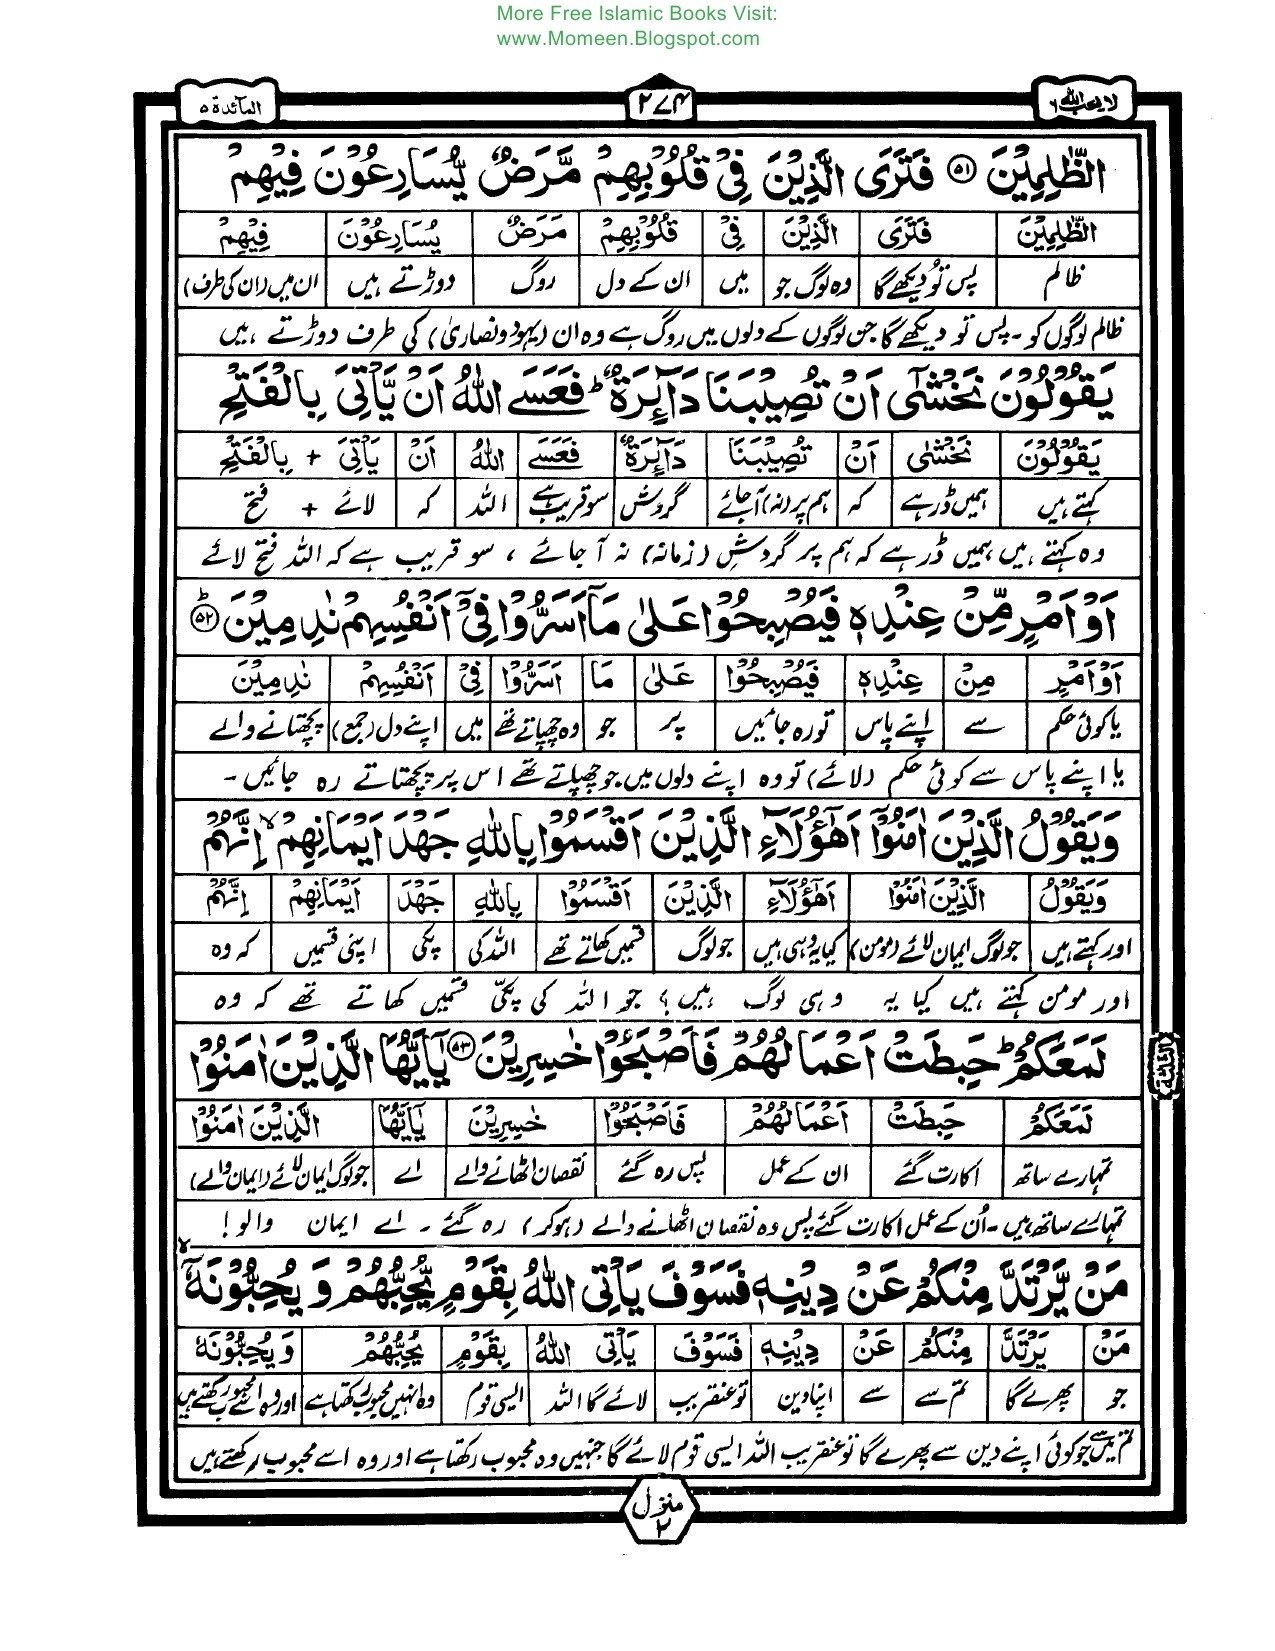 More Free Islamic Books Visit:
www.Momeen.Blogspot.com
لا یحب اللہ ۶ ۲۷۴ المآئدۃ ۵
الظّٰلِمِیْنَ ۵۱ فَتَرَی الَّذِیْنَ فِیْ قُلُوْبِهِمْ مَّرَضٌ یُّسَارِعُوْنَ فِیْهِمْ
الظّٰلِمِیْنَ فَتَرَی الَّذِیْنَ فِیْ قُلُوْبِهِمْ مَرَضٌ یُسَارِعُوْنَ فِیْهِمْ
ظالم پس تو دیکھے گا وہ لوگ جو میں ان کے دل روگ دوڑتے ہیں ان میں (ان کی طرف)
ظالم لوگوں کو ۔ پس تو دیکھے گا جن لوگوں کے دلوں میں روگ ہے وہ ان (یہود و نصاریٰ) کی طرف دوڑتے ہیں
یَقُوْلُوْنَ نَخْشٰٓی اَنْ تُصِیْبَنَا دَآئِرَةٌ ؕ فَعَسَی اللّٰهُ اَنْ یَّاْتِیَ بِالْفَتْحِ
یَقُوْلُوْنَ نَخْشٰی اَنْ تُصِیْبَنَا دَآئِرَةٌ فَعَسَے اللّٰهُ اَنْ یَاْتِیَ + بِالْفَتْحِ
کہتے ہیں ہمیں ڈر ہے کہ ہم پر (نہ) آ جائے گردش سو قریب ہے اللہ کہ لائے + فتح
وہ کہتے ہیں ہمیں ڈر ہے کہ ہم پر گردشِ (زمانہ) نہ آ جائے ، سو قریب ہے کہ اللہ فتح لائے
اَوْ اَمْرٍ مِّنْ عِنْدِهٖ فَیُصْبِحُوْا عَلٰی مَاۤ اَسَرُّوْا فِیْۤ اَنْفُسِهِمْ نٰدِمِیْنَ ؕ ۵۲
اَوْ اَمْرٍ مِنْ عِنْدِهٖ فَیُصْبِحُوْا عَلٰی مَا اَسَرُّوْا فِیْ اَنْفُسِهِمْ نٰدِمِیْنَ
یا کوئی حکم سے اپنے پاس تو رہ جائیں پر جو وہ چھپاتے تھے میں اپنے دل (جمع) پچھتانے والے
یا اپنے پاس سے کوئی حکم (لائے) تو وہ اپنے دلوں میں جو چھپاتے تھے اس پر پچھتاتے رہ جائیں ۔
وَیَقُوْلُ الَّذِیْنَ اٰمَنُوْۤا اَهٰۤؤُلَآءِ الَّذِیْنَ اَقْسَمُوْا بِاللّٰهِ جَهْدَ اَیْمَانِهِمْ ۙ اِنَّهُمْ
وَیَقُوْلُ الَّذِیْنَ اٰمَنُوْا اَهٰۤؤُلَآءِ الَّذِیْنَ اَقْسَمُوْا بِاللّٰهِ جَهْدَ اَیْمَانِهِمْ اِنَّهُمْ
اور کہتے ہیں جو لوگ ایمان لائے (مومن) کیا یہ وہی ہیں جو لوگ قسمیں کھاتے تھے اللہ کی پکی اپنی قسمیں کہ وہ
اور مومن کہتے ہیں کیا یہ وہی لوگ ہیں ؟ جو اللہ کی پکّی قسمیں کھاتے تھے کہ وہ
لَمَعَكُمْ ؕ حَبِطَتْ اَعْمَالُهُمْ فَاَصْبَحُوْا خٰسِرِیْنَ ۵۳ یٰۤاَیُّهَا الَّذِیْنَ اٰمَنُوْا
لَمَعَكُمْ حَبِطَتْ اَعْمَالُهُمْ فَاَصْبَحُوْا خٰسِرِیْنَ یٰۤاَیُّهَا الَّذِیْنَ اٰمَنُوْا
تمہارے ساتھ اکارت گئے ان کے عمل پس رہ گئے نقصان اٹھانے والے اے جو لوگ ایمان لائے (ایمان والے)
تمہارے ساتھ ہیں ۔ اُن کے عمل اکارت گئے پس وہ نقصان اٹھانے والے (ہوکر) رہ گئے ۔ اے ایمان والو !
مَنْ یَّرْتَدَّ مِنْكُمْ عَنْ دِیْنِهٖ فَسَوْفَ یَاْتِی اللّٰهُ بِقَوْمٍ یُّحِبُّهُمْ وَ یُحِبُّوْنَهٗۤ ۙ
مَنْ یَرْتَدَّ مِنْكُمْ عَنْ دِیْنِهٖ فَسَوْفَ یَاْتِی اللّٰهُ بِقَوْمٍ یُحِبُّهُمْ وَ یُحِبُّوْنَهٗ
جو پھرے گا تم سے سے اپنا دین تو عنقریب لائے گا اللہ ایسی قوم وہ انہیں محبوب رکھتا ہے اور وہ اسے محبوب رکھتے ہیں
تم میں سے جو کوئی اپنے دین سے پھرے گا تو عنقریب اللہ ایسی قوم لائے گا جنہیں وہ محبوب رکھتا ہے اور وہ اسے محبوب رکھتے ہیں
منزل ۲